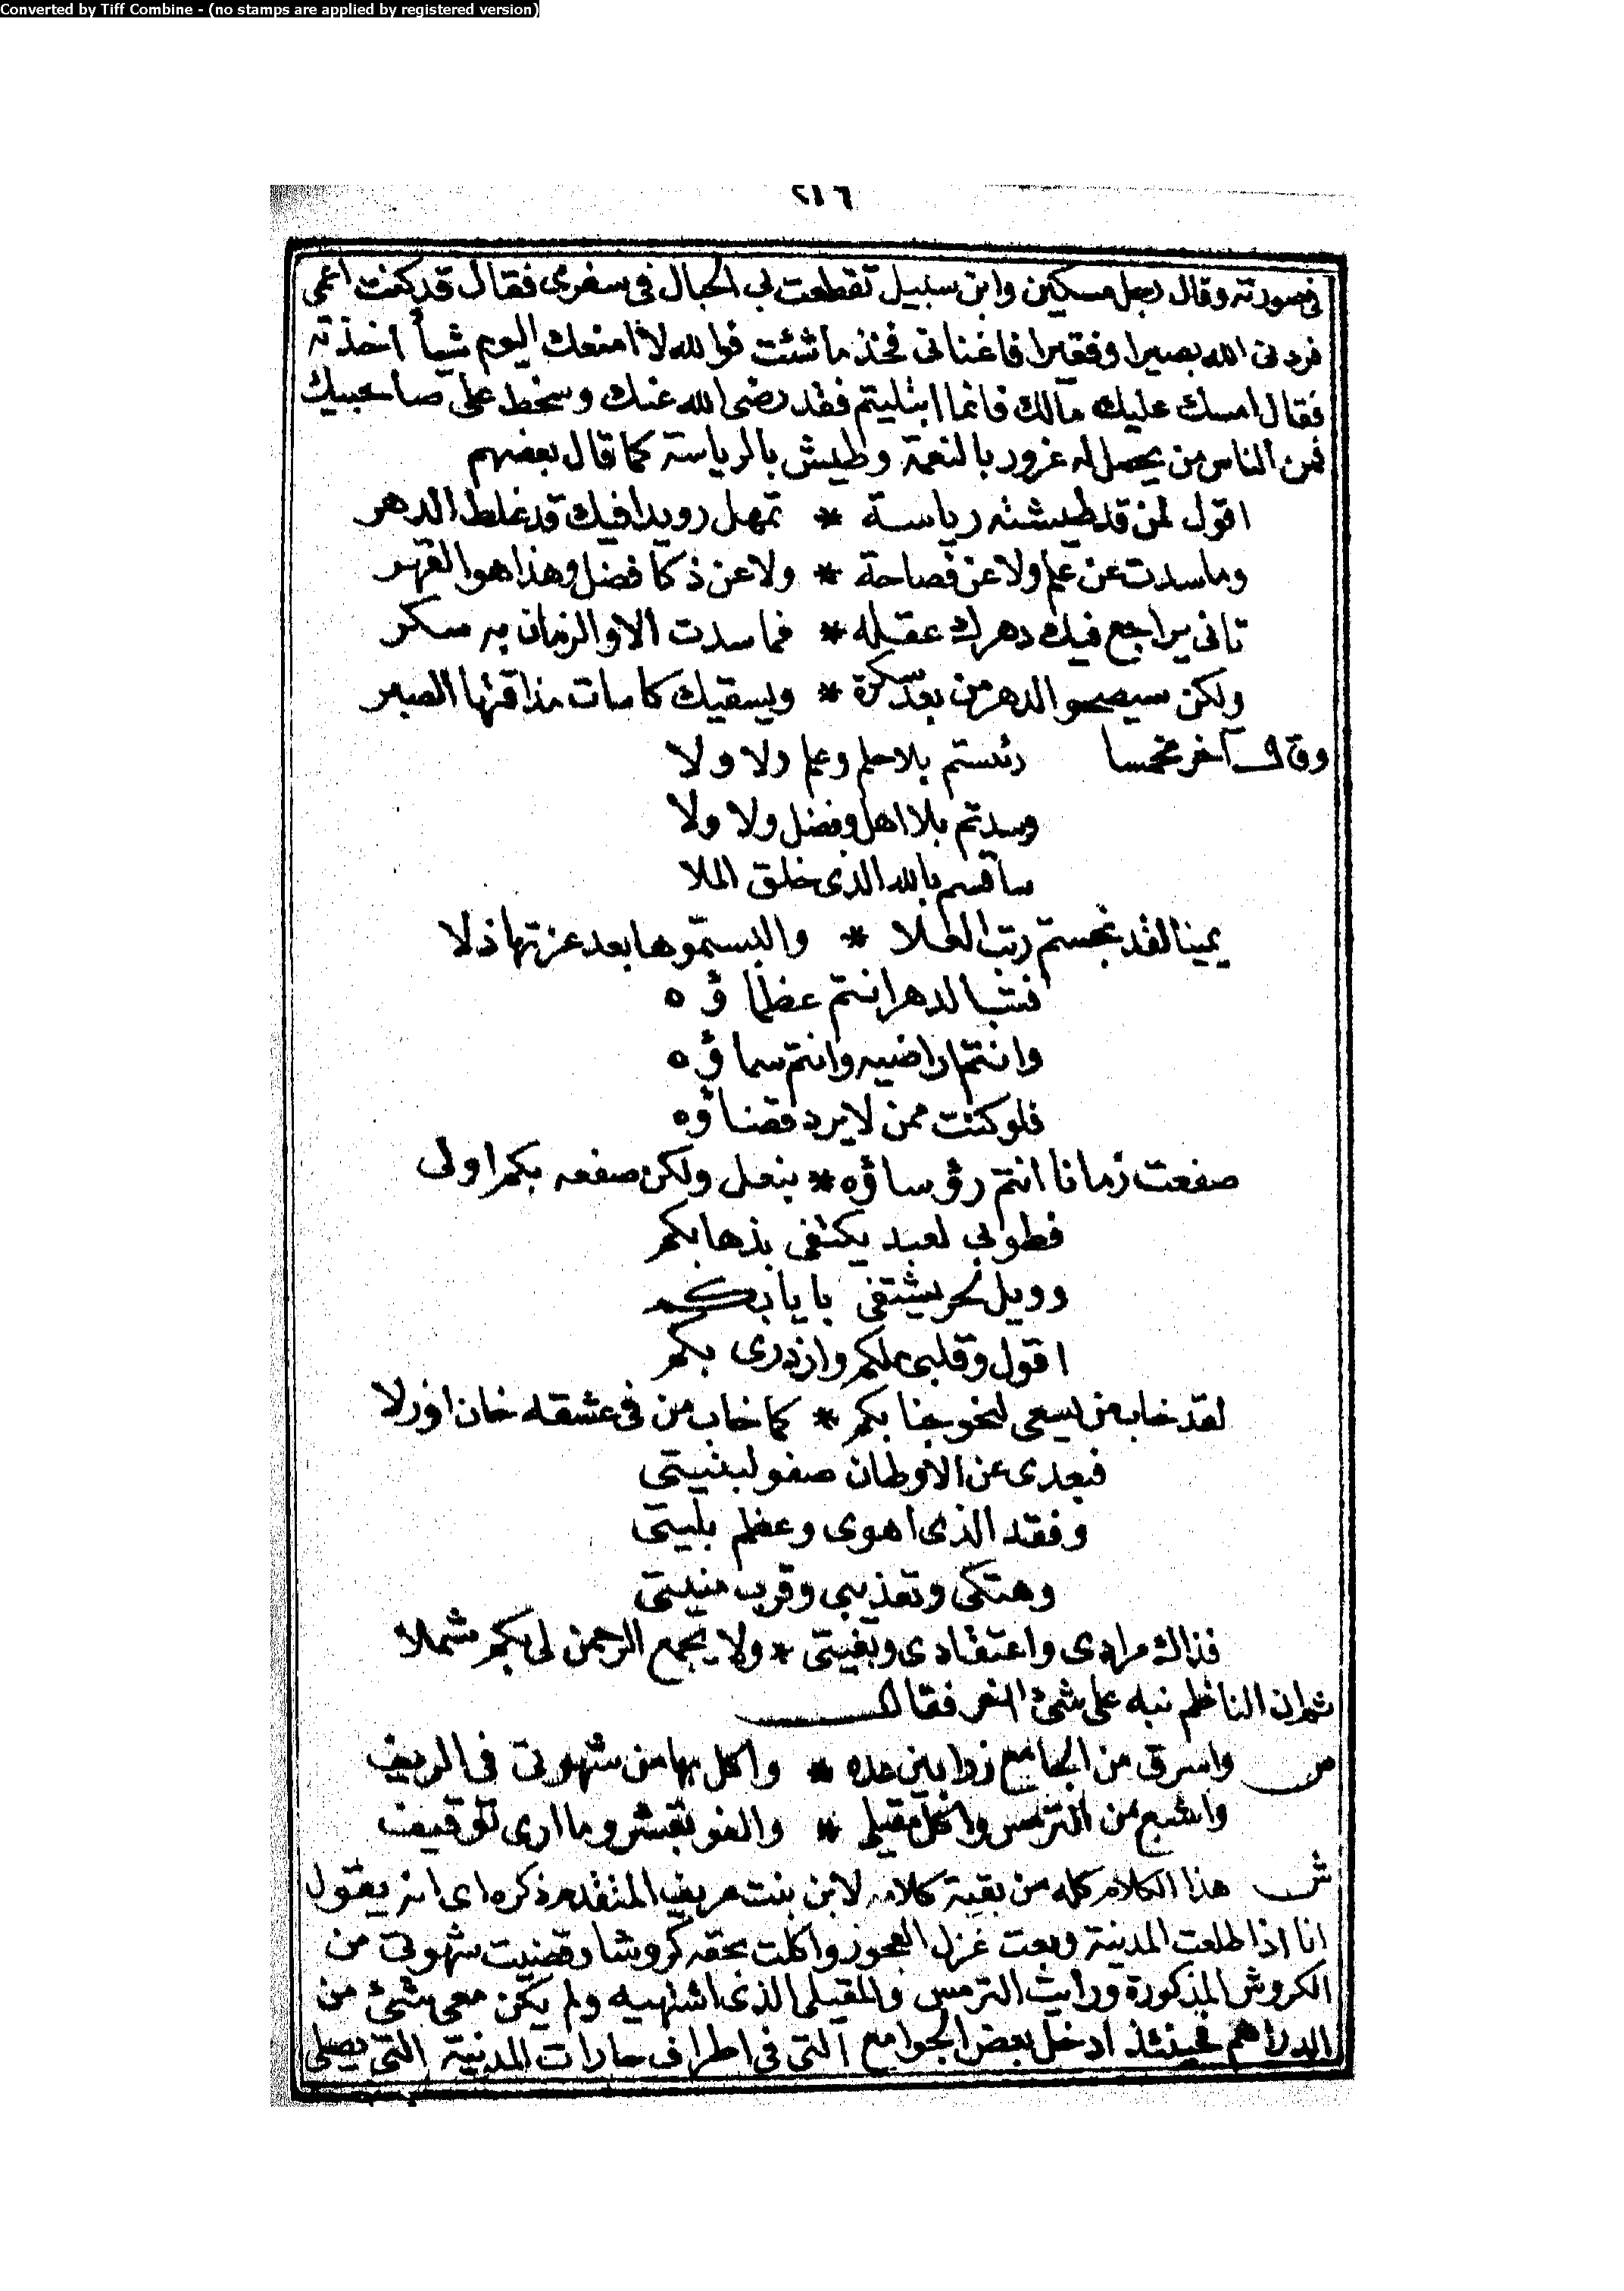 Converted by Tiff Combine - (no stamps are applied by registered version)
٢١٦
فى صورته وقال رجل مسكين وابن سبيل تقطعت بى الحبال فى سفرى فقال قد كنت اعمى
فردنى الله بصيرا وفقيرا فاغنانى فخذ ما شئت فوالله لا امنعك اليوم شيأ اخذته
فقال امسك عليك مالك فانما ابتليتم فقد رضى الله عنك وسخط على صاحبيك
فمن الناس من يحصل له غرور بالنعمة وطيش بالرياسة كما قال بعضهم
اقول لمن قد طيشته رياسة * تمهل رويدا فيك قد غلط الدهر
وما سدت عن علم ولا عن فصاحة * ولا عن ذكا فضل وهذا هو القهر
تانى يراجع فيك دهرك عقله * فما سدت الا والزمان به سكر
ولكن سيصحو الدهر من بعد سكرة * ويسقيك كاسات مذاقتها الصبر
وقال آخر مخمسا رئستم بلا حلم وعلم ولا ولا
وسدتم بلا اهل وفضل ولا ولا
ساقسم بالله الذى خلق الملا
يمينا لقد نجستم رتب العلا * والبستموها بعد عزتها ذلا
فتبا لدهر انتم عظماؤه
وانتم اراضيه وانتم سماؤه
فلو كنت ممن لا يرد قضاؤه
صفعت زمانا انتم رؤساؤه * بنعل ولكن صفعه بكم اولى
فطوبى لعبد يكتفى بذهابكم
وويل لحر يشتفى بايابكم
اقول وقلبى ملكم وازدرى بكم
لقد خاب من يسعى لنحو جنابكم * كما خاب من فى عشقه خان اورلا
فبعدى عن الاوطان صفو لبنيتى
وفقد الذى اهوى وعظم بليتى
وهتكى وتعذيبى وقرب منيتى
فذاك مرادى واعتقادى وبغيتى * ولا يجمع الرحمن لى بكم شملا
ثم ان الناظم نبه على شئ اخر فقال
ص واسرق من الجامع زرابين عده * واكل بها من شهوتى فى الريف
واشبع من الترمس واكل مقيلى * والفو بقشرو ما ارى توقيف
ش هذا الكلام كله من بقية كلامه لابن بنت عريف المتقدم ذكره اى انه يقول
انا اذا طلعت المدينة وبعت غزل العجوز واكلت بحقه كروشا وقضيت شهوتى من
الكروش المذكورة ورايت الترمس والمقيلى الذى اشتهيه ولم يكن معى شئ من
الدراهم فحينئذ ادخل بعض الجوامع التى فى اطراف حارات المدينة التى يصلى